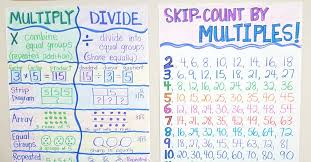 MULTIPLY
DIVIDE
X combine
equal groups
(repeated addition)
÷ divide into
equal groups
(share equally)
3 x 5 = 15
15 ÷ 3 = 5
Strip
Diagram
Array
Equal
Groups
Repeated
SKIP-COUNT BY
MULTIPLES!
2 4, 6, 8, 10, 12, 14, 16, 18, 20
3 6, 9, 12, 15, 18, 21, 24, 27
4 8, 12, 16, 20, 24, 28, 32, 36
5 10, 15, 20, 25, 30, 35, 40, 45
6 12, 18, 24, 30, 36, 42, 48, 54
7 14, 21, 28, 35, 42, 49, 56, 63
8 16, 24, 32, 40, 48, 56, 64, 72
9 18, 27, 36, 45, 54, 63, 72, 81
10 20, 30, 40, 50, 60, 70, 80, 90